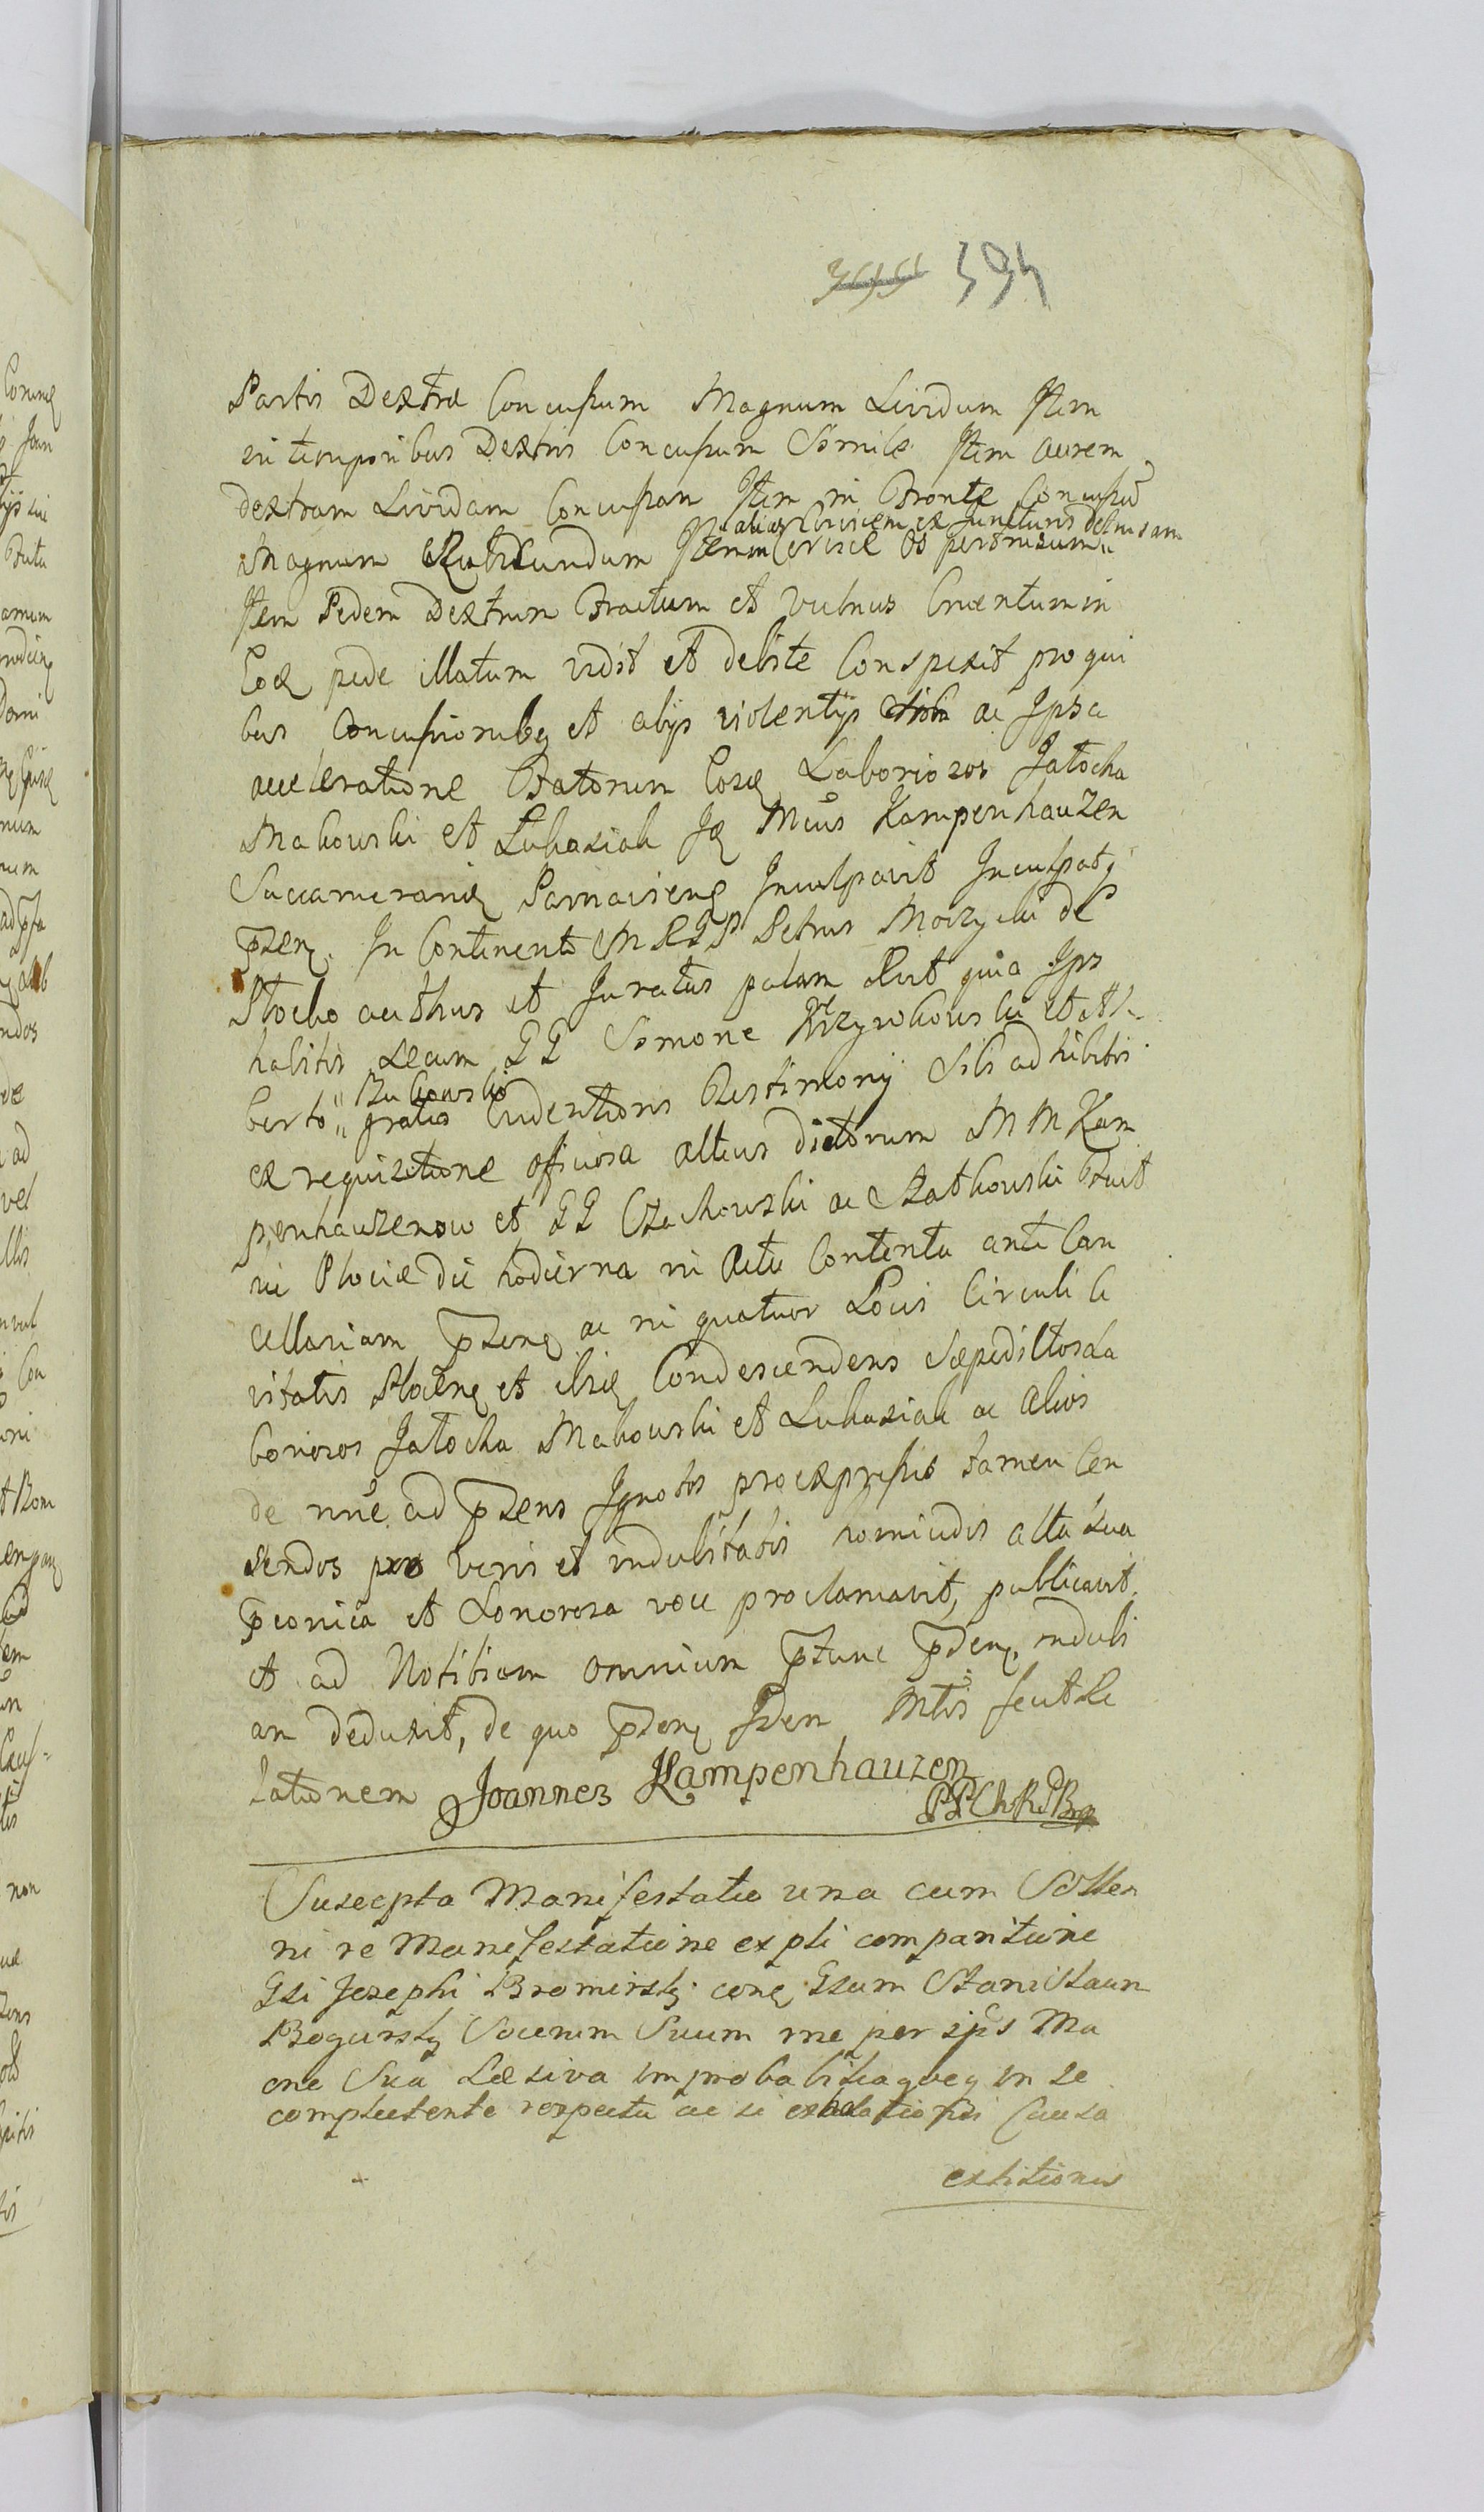 394
Partis Dextræ Concussum Magnum Lividum Item
in temporibus Dextris Concussum Simile Item aurem
dextram Lividam Concussam Item in Fronte Concussũ
alias Cervicem ex Juncturis detrusam
Magnum Rubicundum Item in Cervice Os pertrusum
Item Pedem Dextrum Fractum et Vulnus Cruentum in
Eoq pede illatum vidit et debite Conspexit pro qui
bus Concussionibq et alys violentys ac Ipsa
acceleratione Fatorum Eosq Laboriosos Jatocha
Makowski et Lukasiak Jq Mcus Kampenhauzen
Succamerariq Parnavienq Inculpavit Inculpatq
pzenq. In Continenti M R G P Petrus Moczycki de
Plocko authus et Juratus palam Rcit quia Ips
habitis secum GG Simone Krzywkowski et Al
berto Bukowski gratia Evidentioris Testimony Sibi adhibitis
ex requisitione officiosa altius dictorum M M Kam
penhauzenow et GG Czachowski ac Szatkowski Fuit
in Plociæ die hodierna in Actu Contenta ante Can
cellariam pzenq ac in quatuor Locis Circuli Ci
vitatis Plocenq et ibiq Condescendens sæpedictos La
boriosos Jatocha Makowski et Lukasiak ac Alios
de nne ad pzens Ignotos pro expressis tamen Cen
sendos pro veris et indubitatis homicidis alta sua
pconica et Sonorosa voce proclamavit, publicavit,
et ad Notitiam omnium ptunc pdenq. indubi
am deduxit, de quo pzenq Idem Mtis fecit Re
lationem Joannes Kampenhauzen
PPChRdBrp
Suscepta Manifestatio una cum Sollen
ni re Manifestatione ex pti comparitione
Gsi Josephi Bromirsky conq Gsum Stanislaum
Bogursky Socerum Suum me per ips Ma
one Sua Læsiva improbabiliaqueq in se
complectente respectu ac si Causa
extitionis